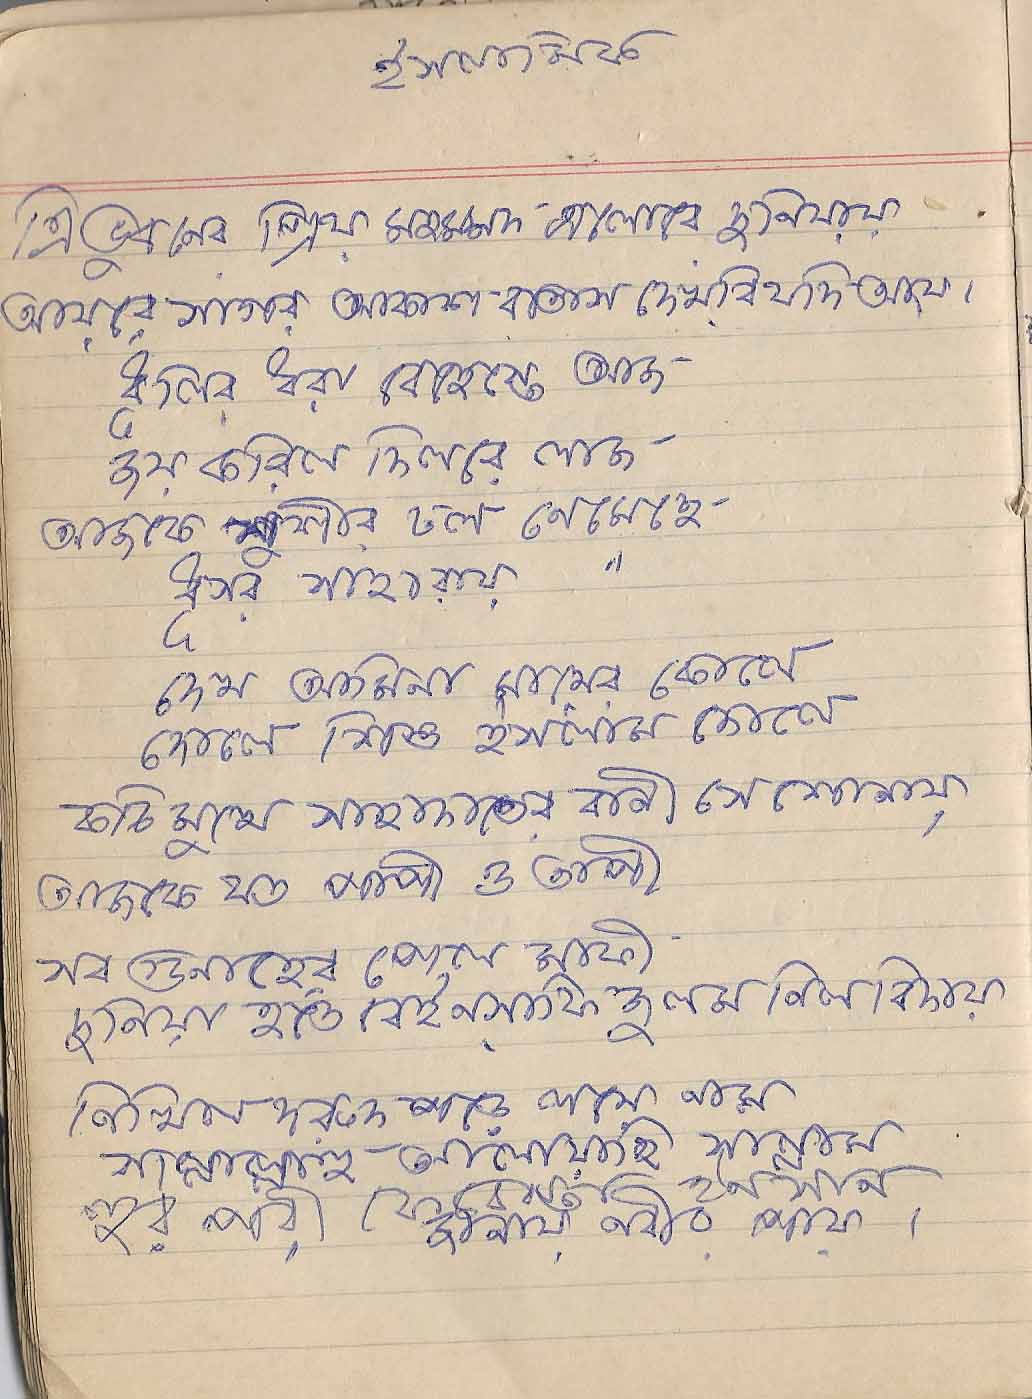 ইসলামিক
ত্রিভুবনের প্রিয় মহম্মদ এলোরে দুনিয়ায়
আয়রে সাগর আকাশ বাতাস দেখবি যদি আয়।
ধূলির ধরা বেহেস্তে আজ
জয় করিল দিলরে লাজ
আজকে খুশীর ঢল নেমেছে
ধূসর সাহারায় "
দেখ আমিনা মায়ের কোলে
দোলে শিশু ইসলাম দোলে
কচি মুখে সাহাদাতের বানী সে শোনায়
আজকে যত পাপী ও তাপী
সব গুনাহের পেল মাফী
দুনিয়া হতে বেইনসাফি জুলম নিল বিদায়
নিখিল দরুদ পড়ে লয়ে নাম
সাল্লাল্লাহু আলোয়াহি সাল্লাম
হুর পরী ফেরিস্তা ইনসান
জানায় নবীর পায়।